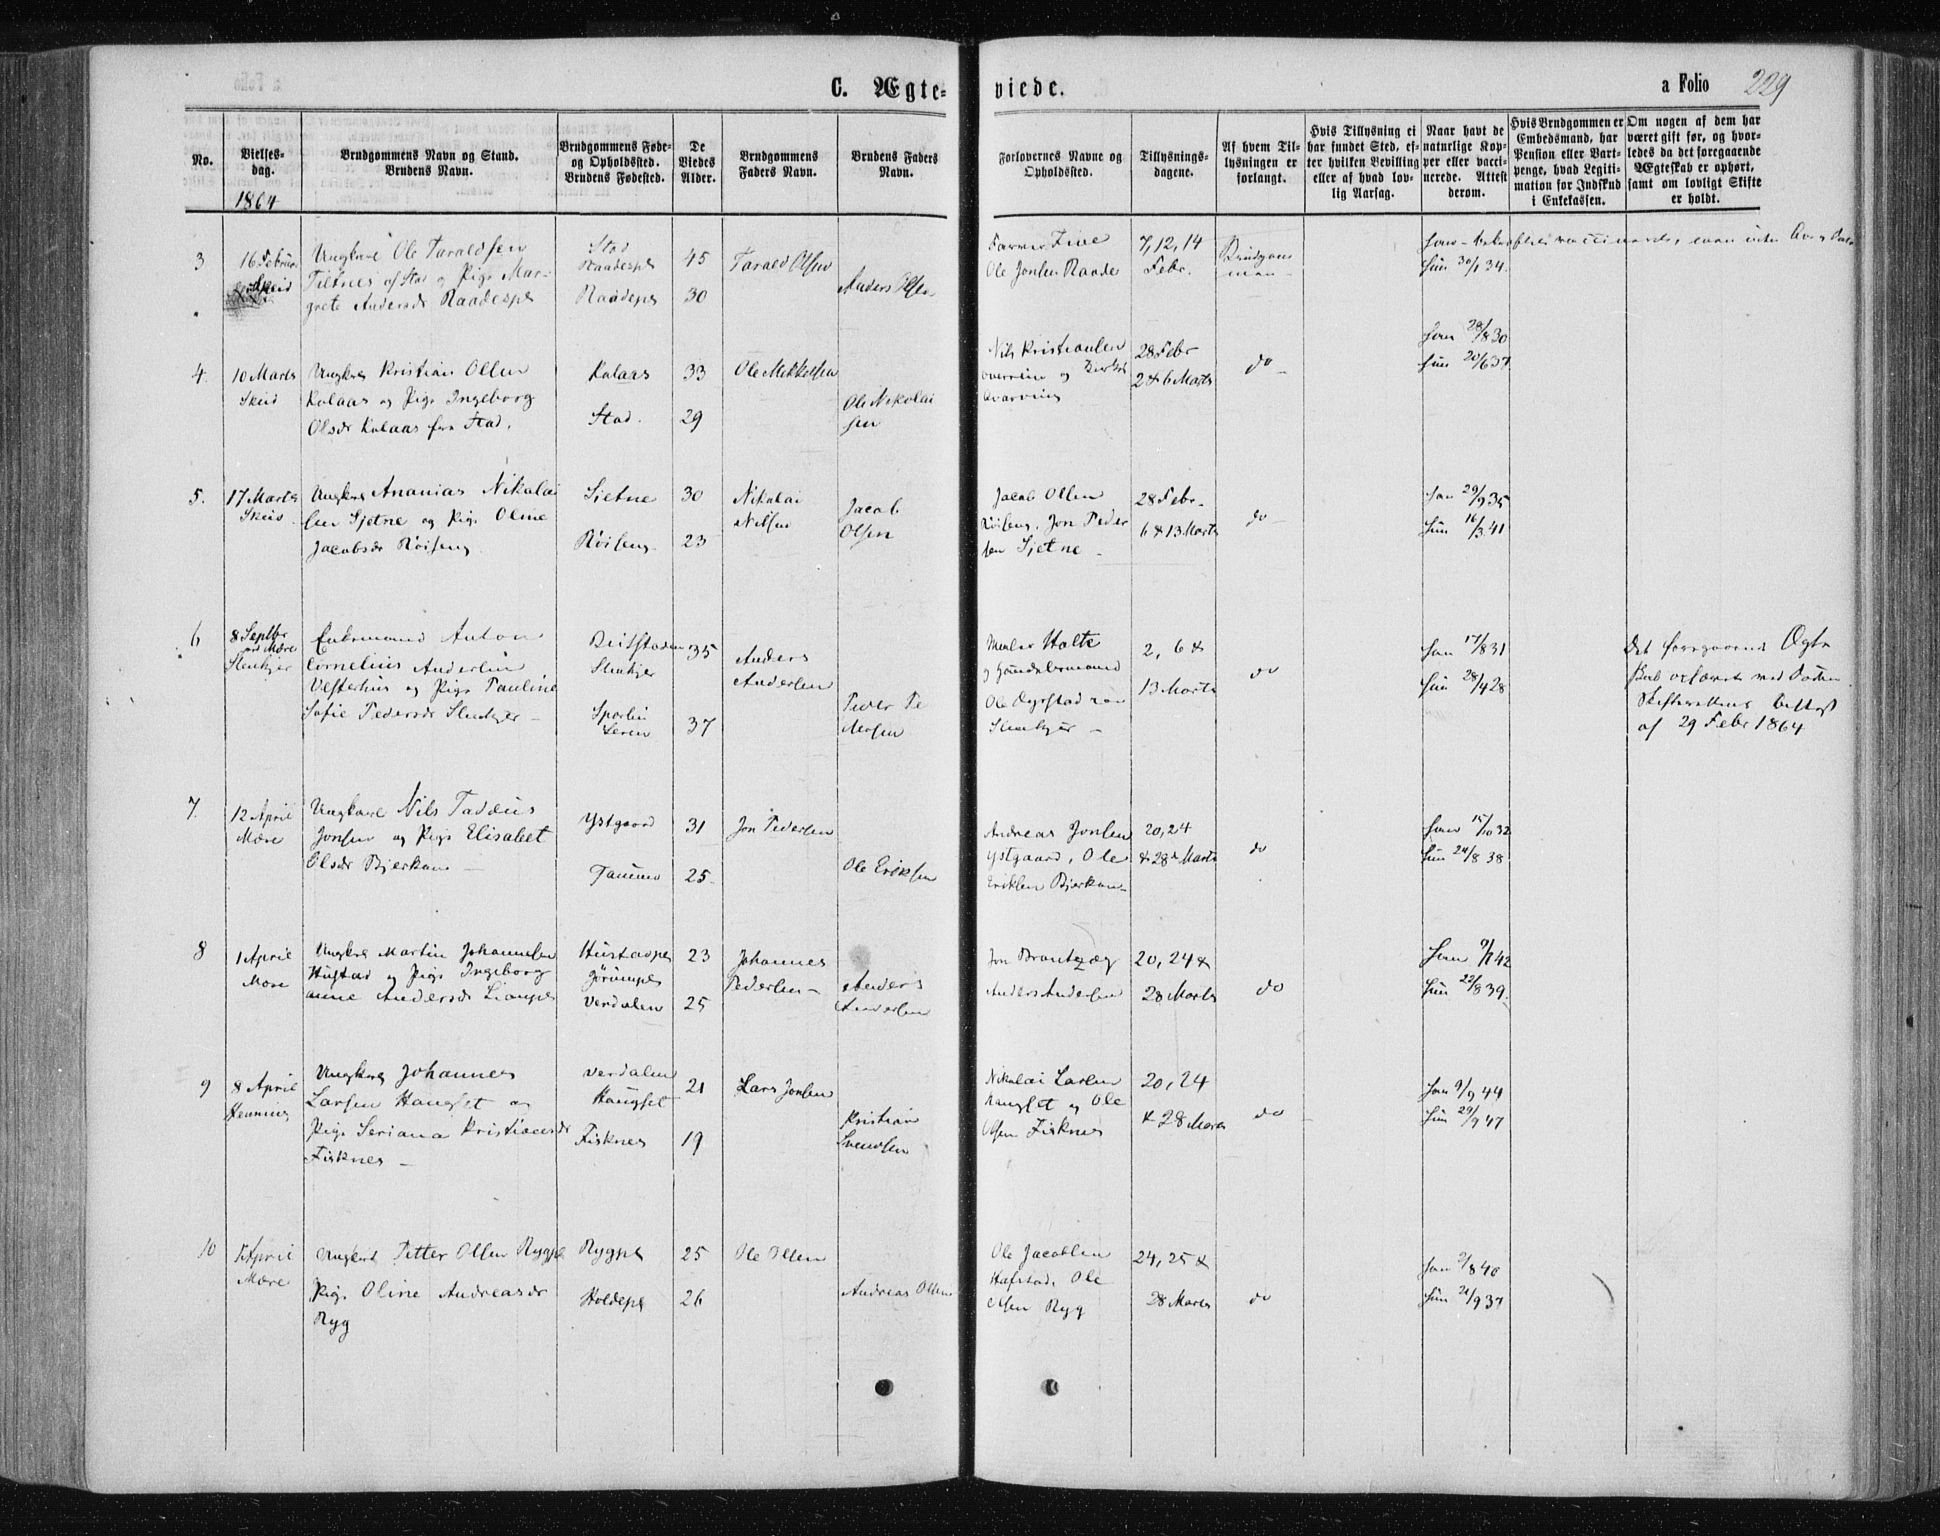 C. Ægte-
viede.
a Folio 229
No.
Vielses-
dag.
1864
Brudgommens Navn og Stand.
Brudens Navn.
Brudgommens Føde-
og Opholdssted.
Brudens Fødested.
De
Viedes
Alder.
Brudgommens
Faders Navn.
Brudens Faders
Navn.
Forlovernes Navne og
Opholdssted.
Tillysnings-
dagene.
Af hvem Til-
lysningen er
forlangt.
Hvis Tillysning ei
har fundet Sted, ef-
ter hvilken Bevilling
eller af hvad lov-
lig Aarsag.
Naar havt de
naturlige Kop-
per eller vacci-
nerede. Attest
derom.
Hvis Brudgommen er
Embedsmand, har
Pension eller Vart-
penge, hvad Legiti-
mation for Indskud
i Enkekassen.
Om nogen af dem har
været gift før, og hvor-
ledes da det foregaaende
Ægteskab er ophørt,
samt om lovligt Skifte
er holdt.
3
16 Februar
Skeid
Ungkarl Ole Taraldsen
Tiltnes af Stod og Pige Mar-
grete Andersdr Raadespl
Stod
Raadespl
Raadepl
45
30
Tarald Olsen
Anders Olsen
Ole Jonsen Raade
7, 12, 14
Febr.
Brudgom
man
hun 30/1 34.
4.
10 Marts
Skeid
Ungkarl Kristian Olsen
Kolaas og Pige Ingeborg
Olsdr Kolaas fra Stod.
Kolaas
Stod.
33
29
Ole Mikkelsen
Ole Nikolai
sen
Nils Kristiansen
28 Febr
2 & 6 Marts
do
ham 28/8 30
hun 20/6 37
5.
17 Marts
Skeid
Ungkarl Ananias Nikolai
sen Sjetne og Pige Oline
Jacobsdr Røiseng
Sjetne
Røiseng
30
23
Nikolai
Nilsen
Jacob
Olsen
Jacob Olsen
Røiseng, Jon Peder
sen Sjetne
28 Febr
6 & 13 Marts
do
ham 29/9 35
hun 16/3 41
6
8 Septbr
Mære
Stenkjer
Enkemand Anton
Cornelius Andersen
Vesterhus og Pige Pauline
Sofie Pedersdr Stenkjer
Beitstaden
Stenkjer
Sparbu
Leren
35
37
Anders
Andersen
Peder Pe
dersen
Holte
og Gaardbrmand
Stenkjer
2, 6 &
13 Marts
do
ham 17/8 31
hun 28/4 28
Det foregaaende Ægte
skab ophævet med Døden
Skifterettens Attest
af 29 Febr 1864
7.
12 April
Mære
Ungkarl Nils Tadæus
Jonsen og Pige Elisabet
Olsdr Bjerkan
Ystgaard
31
25
Jon Pedersen
Ole Eriksen
Andreas Jonsen
Ystgaard, Ole
Eriksen Bjerkan
20, 24
& 28 Marts
do
ham 15/10 32
hun 24/8 38
8
1 April
Mære
Ungkarl Martin Johannesen
Hustad og Pige Ingeborg
anne Andersdr
Hustadpl
Verdalen
23
25
Johannes
Pedersen
Anders
Andersen
Jon Brandtzæg
Anders Andersen
20, 24 &
28 Marts
do
ham 9/1 42
hun 22/8 39.
9
8 April
Henning
Ungkarl Johannes
Larsen Haugset og
Pige Seriana Kristiansdr
Fisknes
Verdalen
Haugset
Fisknes
21
19
Lars Jonsen
Kristian
Svendsen
Nikolai Larsen
Haugset og Ole
Olsen Fisknes
20, 24
& 28 Marts
do
ham 9/9 44
hun 29/9 47
10
April
Mære
Ungkarl Petter Olsen Rygpl
Pige Oline Andreasdr
Ryg
Rygpl
Holdepl
25
26
Ole Olsen
Andreas Olsen
Ole Jacobsen
Hafstad, Ole
Olsen Ryg
24, 25 &
28 Marts
do
ham 2/8 40
hun 21/9 37